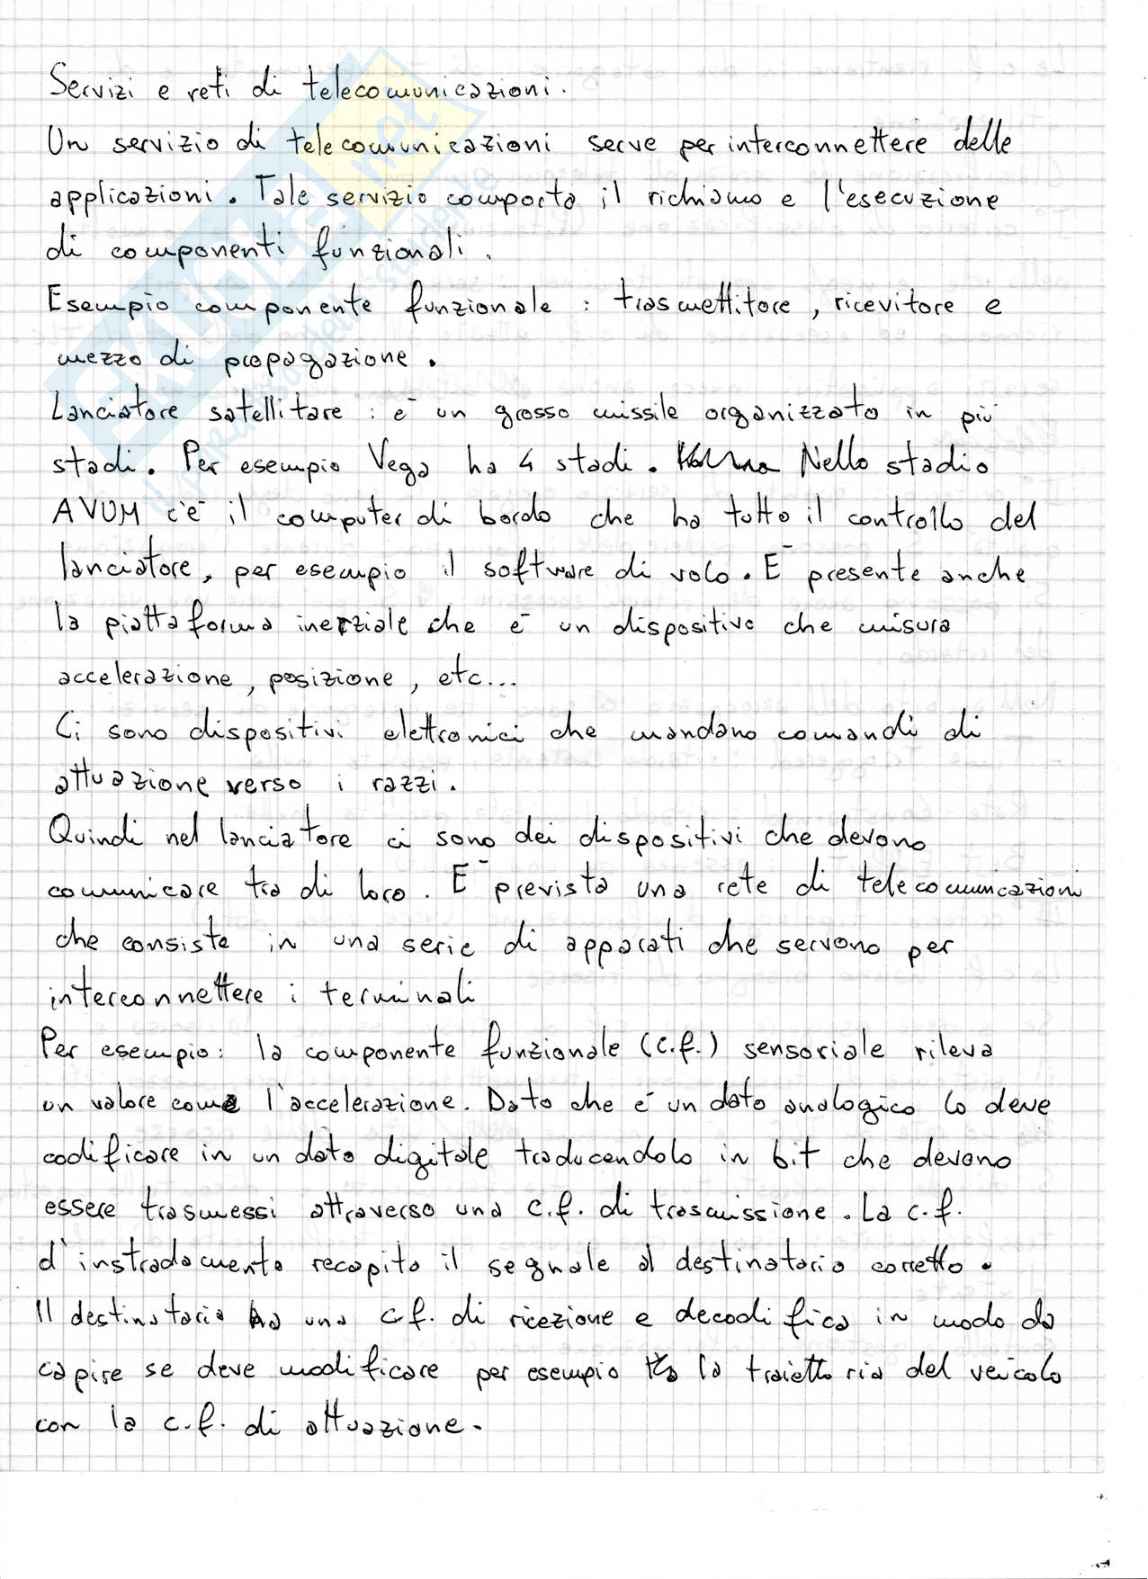 Servizi e reti di telecomunicazioni.
Un servizio di telecomunicazioni serve per interconnettere delle
applicazioni. Tale servizio comporta il richiamo e l'esecuzione
di componenti funzionali.
Esempio componente funzionale : trasmettitore, ricevitore e
mezzo di propagazione.
Lanciatore satellitare : è un grosso missile organizzato in più
stadi. Per esempio Vega ha 4 stadi. Nello stadio
AVUM c'è il computer di bordo che ha tutto il controllo del
lanciatore, per esempio il software di volo. È presente anche
la piattaforma inerziale che è un dispositivo che misura
accelerazione, posizione, etc...
Ci sono dispositivi elettronici che mandano comandi di
attuazione verso i razzi.
Quindi nel lanciatore ci sono dei dispositivi che devono
comunicare tra di loro. È prevista una rete di telecomunicazioni
che consiste in una serie di apparati che servono per
interconnettere i terminali
Per esempio: la componente funzionale (c.f.) sensoriale rileva
un valore come l'accelerazione. Dato che è un dato analogico lo deve
codificare in un dato digitale traducendolo in bit che devono
essere trasmessi attraverso una c.f. di trasmissione. La c.f.
d'instradamento recapita il segnale al destinatario corretto.
Il destinatario ha una c.f. di ricezione e decodifica in modo da
capire se deve modificare per esempio la traiettoria del veicolo
con la c.f. di attuazione.